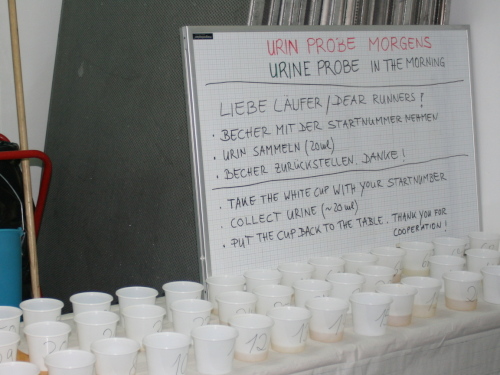 URIN PROBE MORGENS
URINE PROBE IN THE MORNING
LIEBE LÄUFER / DEAR RUNNERS!
• BECHER MIT DER STARTNUMMER NEHMEN
• URIN SAMMELN (20ml)
• BECHER ZURÜCKSTELLEN. DANKE!
• TAKE THE WHITE CUP WITH YOUR STARTNUMBER
• COLLECT URINE (~20 ml)
• PUT THE CUP BACK TO THE TABLE. THANK YOU FOR
COOPERATION!